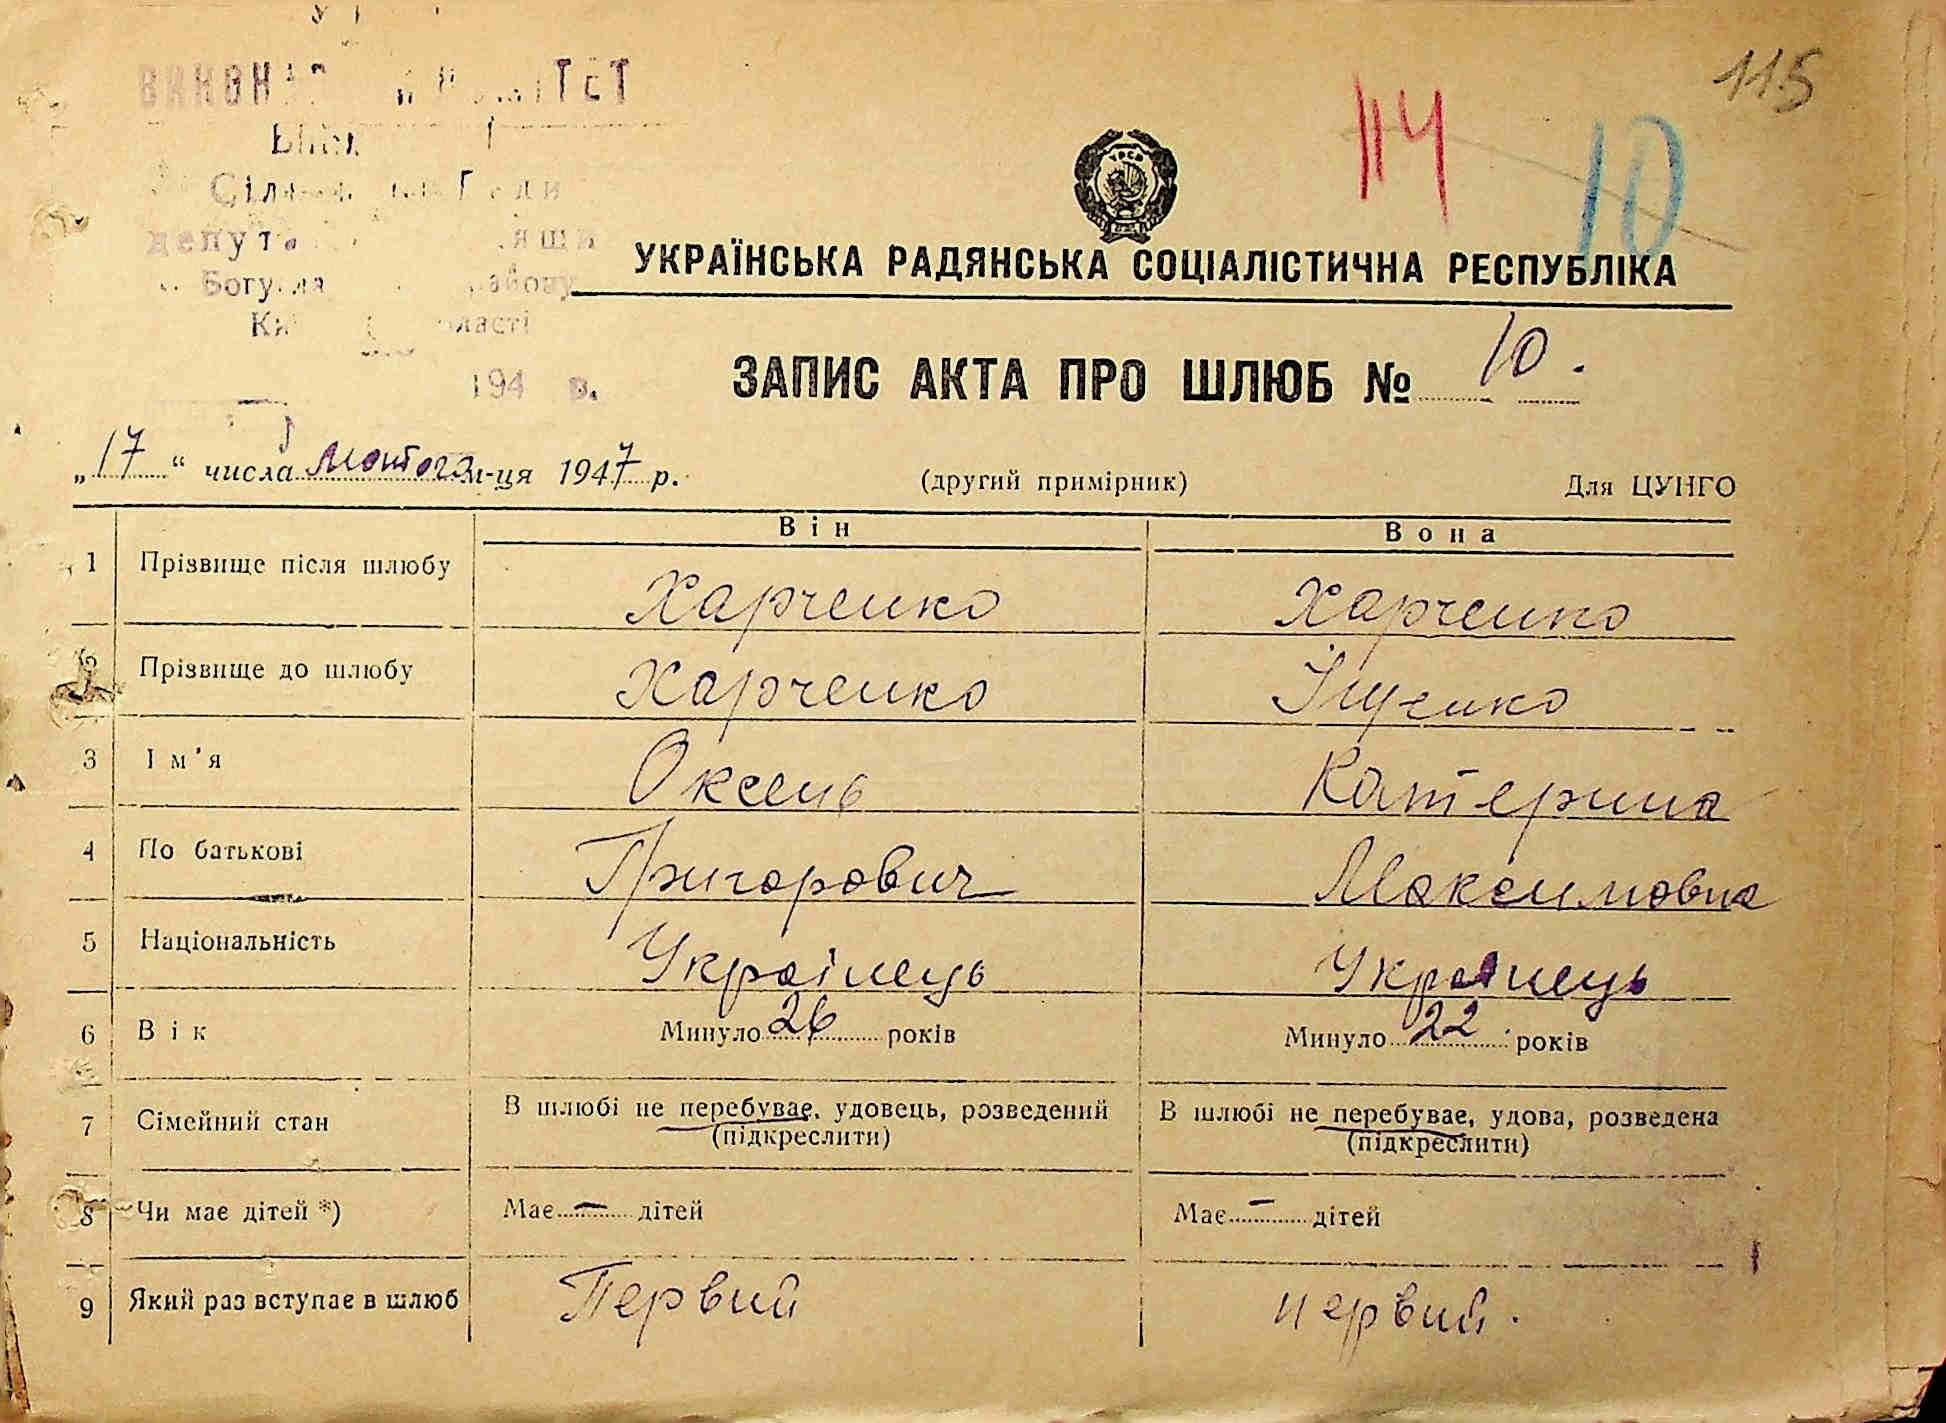 115
114
10
УРСР
депут
194 р.
УКРАЇНСЬКА РАДЯНСЬКА СОЦІАЛІСТИЧНА РЕСПУБЛІКА
ЗАПИС АКТА ПРО ШЛЮБ № 10.
„17“ числа лютого м-ця 1947 р. (другий примірник) Для ЦУНГО
Він Вона
1 Прізвище після шлюбу Харченко Харченко
Прізвище до шлюбу Харченко Іщенко
3 Ім'я Оксень Катерина
4 По батькові Григорович Максимовна
5 Національність Українець Українець
6 Вік Минуло 26 років Минуло 22 років
7 Сімейний стан В шлюбі не перебуває, удовець, розведений В шлюбі не перебуває, удова, розведена
(підкреслити) (підкреслити)
8 Чи має дітей *) Має — дітей Має — дітей
9 Який раз вступає в шлюб Первий первий.